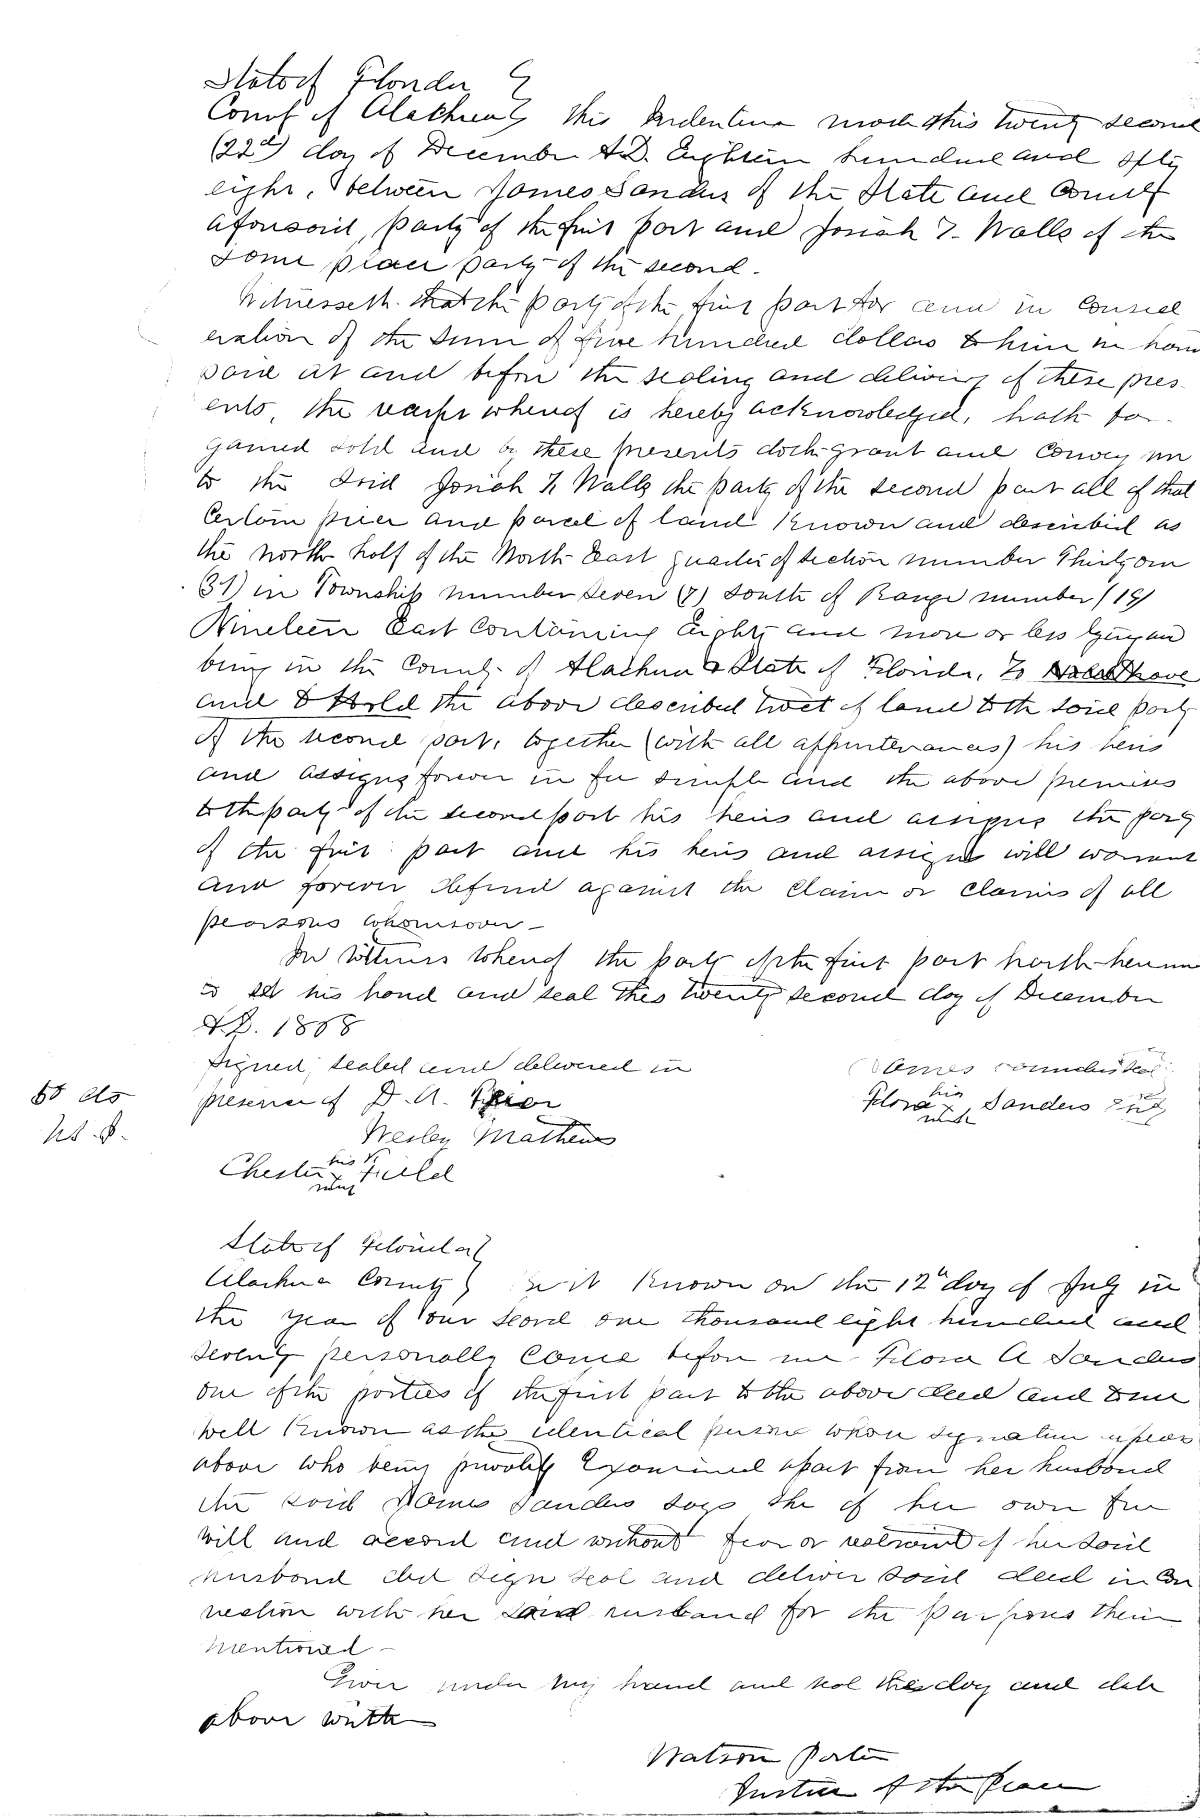 State of Florida
County of Alachua this Indenture made this twenty second
(22d) day of December A.D. Eighteen hundred and sixty
eight, between James Sanders of the State and County
aforesaid, party of the first part and Josiah T. Walls of the
same place party of the second.
Witnesseth that the party of the first part for and in consid
eration of the sum of five hundred dollars to him in hand
paid at and before the sealing and delivery of these pres
ents, the receipt whereof is hereby acknowledged, hath bar
gained sold and by these presents doth grant and convey un
to the said Josiah T. Walls the party of the second part all of that
certain piece and parcel of land Known and described as
the north half of the North East quarter of section number Thirty one
(31) in Township number seven (7) south of Range number (19)
Nineteen East containing Eighty and more or less lying and
being in the County of Alachua & State of Florida, To have
and to Hold the above described tract of land to the said party
of the second part, together (with all appurtenances) his heirs
and assigns forever in fee simple and the above premises
to the party of the second part his heirs and assigns the party
of the first part and his heirs and assigns will warrant
and forever defend against the claim or claims of all
pearsons whomsoever -
In witness whereof the party of the first part hath hereun
to set his hand and seal this twenty second day of December
A.D. 1868
Signed, sealed and delivered in James Sanders seal
50 cts presence of D. A. Prior Flora his x mark Sanders
Wesley Mathews
Chester his x mark Field
State of Florida
Alachua County Be it Known on the 12th day of July in
the year of our Leord one thousand eight hundred and
seventy personally came before me Flora A Sanders
one of the parties of the first part to the above deed and to me
well Known as the identical person whose signature apears
above who being privately Examined apart from her husband
the said James Sanders says she of her own free
will and accord and without fear or restraint of her said
husband did sign seal and deliver said deed in con
nection with her said husband for the purposes therein
mentioned -
Given under my hand and seal this day and date
above written
Watson Porter
Justice of the Peace